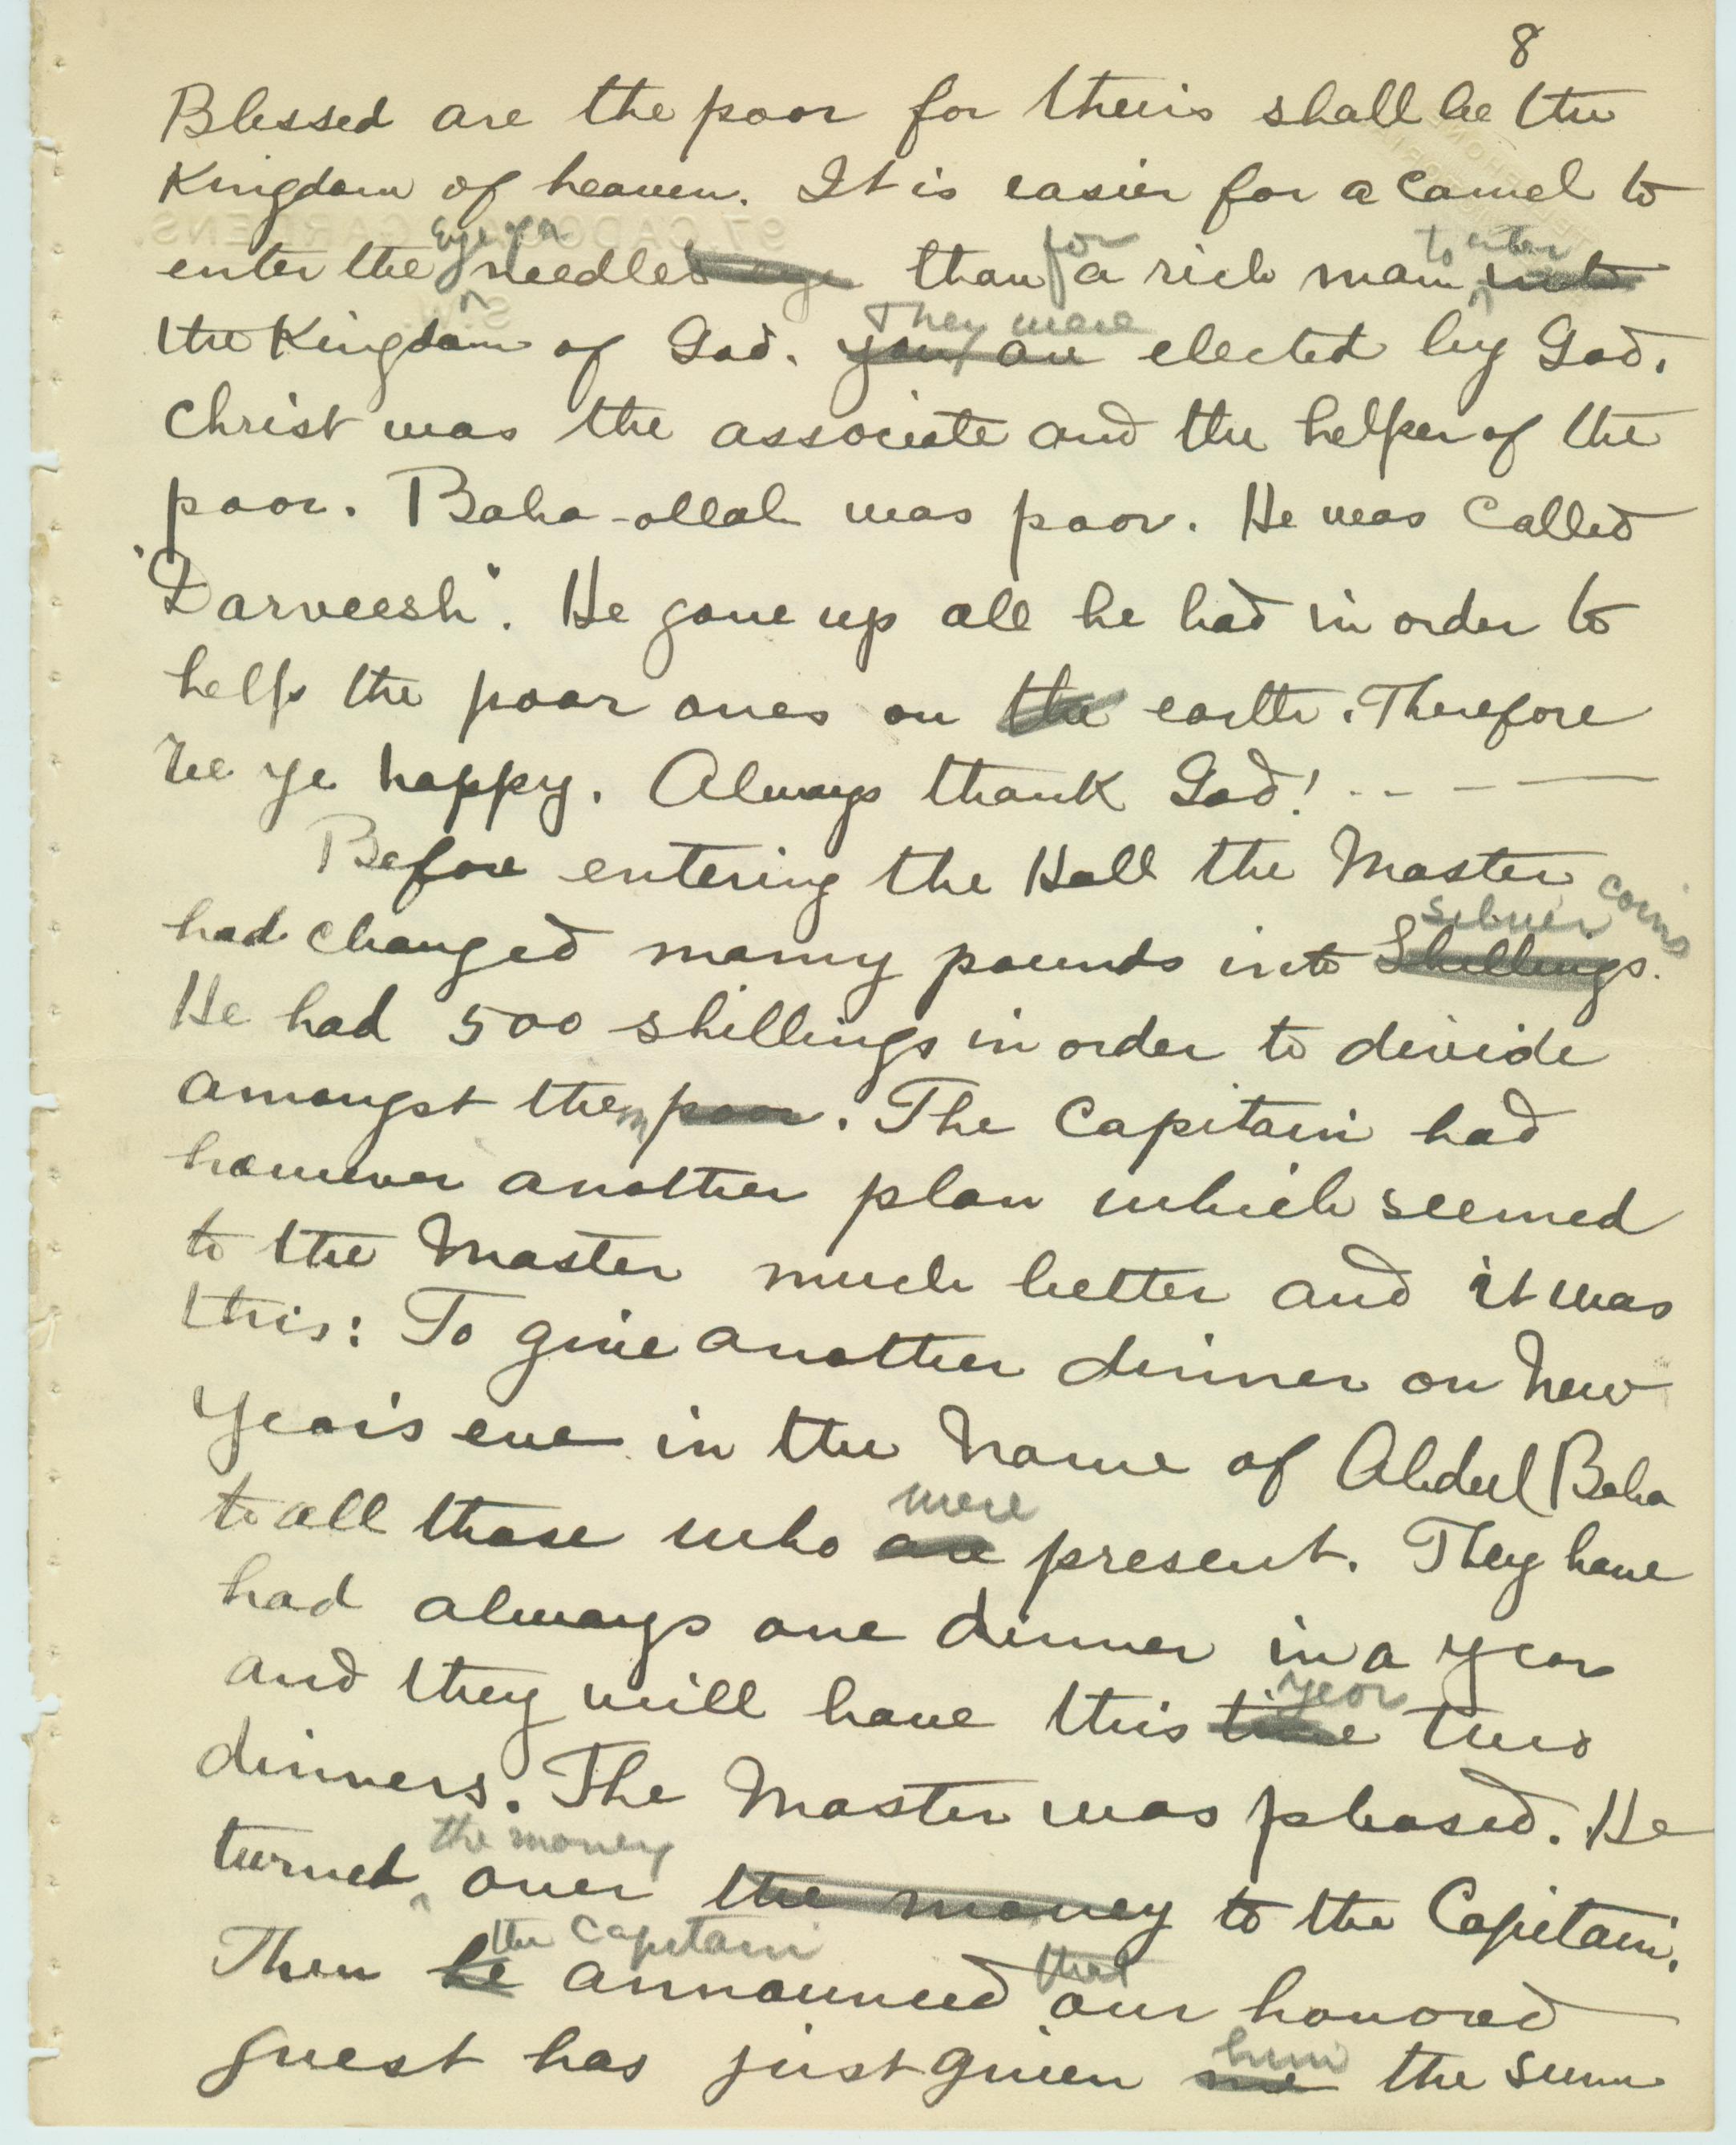 8
Blessed are the poor for theirs shall be the
Kingdom of heaven. It is easier for a camel to
eye of a for to enter
enter the needles eye than a rich man into
They were
the Kingdom of God. you are elected by God.
Christ was the associate and the helper of the
poor. Baha-ollah was poor. He was called
"Darveesh". He gave up all he had in order to
help the poor ones on the earth. Therefore
be ye happy. Always thank God! - - - —
Before entering the Hall the Master
silver coins
had changed many pounds into Shillings.
He had 500 shillings in order to divide
amongst them poor. The Capitain had
however another plan which seemed
to the Master much better and it was
this: To give another dinner on New
Year's eve in the Name of Abdul Baha
were
to all those who are present. They have
had always one dinner in a year
year
and they will have this time two
dinners. The Master was pleased. He
the money
turned over the money to the Capitain.
the Capitain that
Then he announced our honored
him
guest has just given me the sum
97, CADOGAN GARDENS,
S.W.